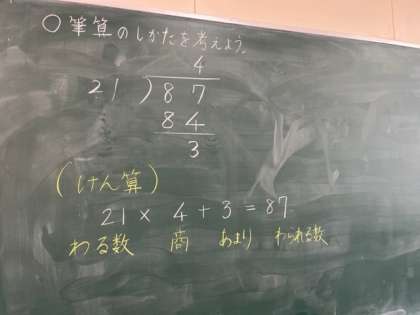 ○筆算のしかたを考えよう。
4
21)87
84
3
(けん算)
21 × 4 + 3 = 87
わる数 商 あまり わられる数